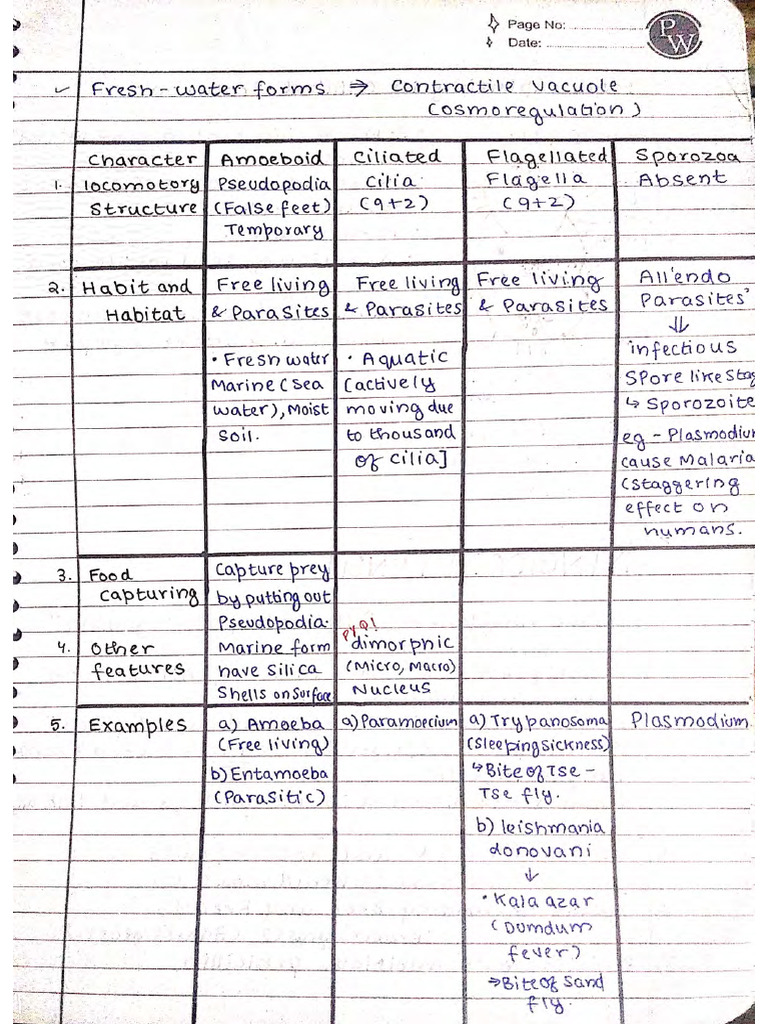 Page No:
Date:
PW
✓ Fresh-water forms ⇒ contractile vacuole
(osmoregulation)
Character
Amoeboid
Ciliated
Flagellated
Sporozoa
1. locomotory
Structure
Pseudopodia
(False feet)
Temporary
Cilia
(9+2)
Flagella
(9+2)
Absent
2. Habit and
Habitat
Free living
& Parasites
• Fresh water
Marine (sea
water), Moist
Soil.
Free living
& Parasites
• Aquatic
[actively
moving due
to thousand
of cilia]
Free living
& Parasites
All 'endo
Parasites'
⇓
infectious
Spore like stag
↳ Sporozoite
eg - Plasmodium
cause Malaria
(Staggering
effect on
humans.
3. Food
capturing
Capture prey
by putting out
Pseudopodia.
4. Other
features
Marine form
have silica
Shells on surface
PYQ!
dimorphic
(Micro, Macro)
Nucleus
5. Examples
a) Amoeba
(Free living)
b) Entamoeba
(Parasitic)
a) Paramoecium
a) Trypanosoma
(Sleeping sickness)
↳ Bite of Tse-
Tse fly.
b) leishmania
donovani
↓
• Kala azar
(Dumdum
fever)
→ Bite of Sand
fly.
Plasmodium